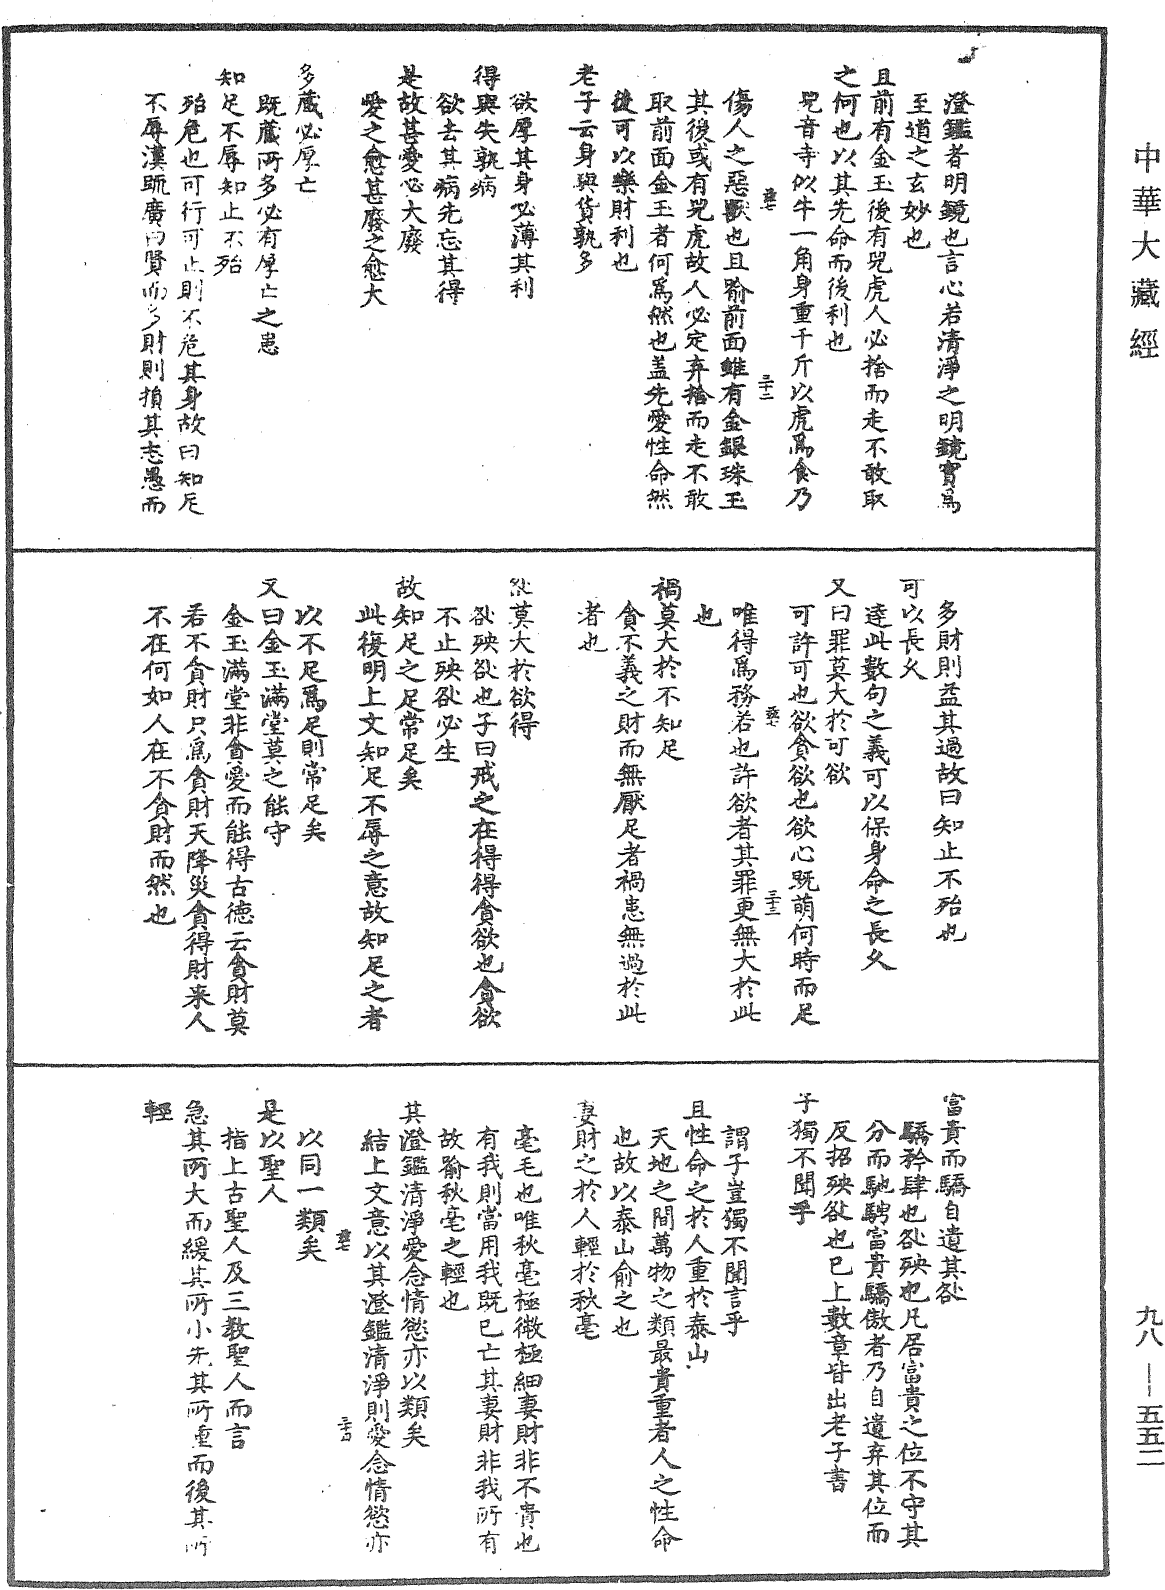 中華大藏經
澄鑑者明鏡也言心若清淨之明鏡實爲
至道之玄妙也
且前有金玉後有兕虎人必捨而走不敢取
之何也以其先命而後利也
兕音寺似牛一角身重千斤以虎爲食乃
傷人之惡獸也且喻前面雖有金銀珠玉
其後或有兕虎故人必定弃捨而走不敢
取前面金玉者何爲然也盖先愛性命然
後可以樂財利也
老子云身與貨孰多
欲厚其身必薄其利
得與失孰病
欲去其病先忘其得
是故甚愛必大廢
愛之愈甚廢之愈大
多藏必厚亡
既藏所多必有厚亡之患
知足不辱知止不殆
殆危也可行可止則不危其身故曰知足
不辱漢疏廣曰賢而多財則損其志愚而
多財則益其過故曰知止不殆也
可以長久
達此數句之義可以保身命之長久
又曰罪莫大於可欲
可許可也欲貪欲也欲心既萌何時而足
唯得爲務若也許欲者其罪更無大於此
也
禍莫大於不知足
貪不義之財而無厭足者禍患無過於此
者也
咎莫大於欲得
咎殃咎也子曰戒之在得得貪欲也貪欲
不止殃咎必生
故知足之足常足矣
此復明上文知足不辱之意故知足之者
以不足爲足則常足矣
又曰金玉滿堂莫之能守
金玉滿堂非貪愛而能得古德云貪財莫
若不貪財只爲貪財天降災貪得財來人
不在何如人在不貪財而然也
富貴而驕自遺其咎
驕矜肆也咎殃也凡居富貴之位不守其
分而馳騁富貴驕傲者乃自遺弃其位而
反招殃咎也已上數章皆出老子書
子獨不聞乎
謂子豈獨不聞言乎
且性命之於人重於泰山
天地之間萬物之類最貴重者人之性命
也故以泰山俞之也
妻財之於人輕於秋毫
毫毛也唯秋毫極微極細妻財非不貴也
有我則當用我既已亡其妻財非我所有
故喻秋毫之輕也
其澄鑑清淨愛念情慾亦以類矣
結上文意以其澄鑑清淨則愛念情慾亦
以同一類矣
是以聖人
指上古聖人及三教聖人而言
急其所大而緩其所小先其所重而後其所
輕
九八——五五二